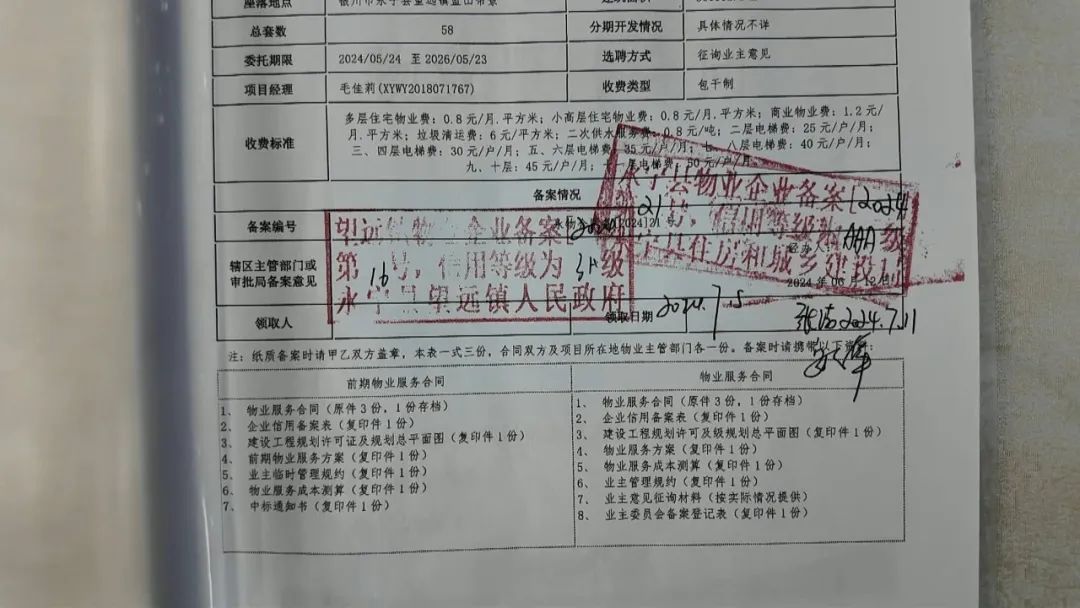 座落地点
总套数 58 分期开发情况 具体情况不详
委托期限 2024/05/24 至 2026/05/23 选聘方式 征询业主意见
项目经理 毛佳莉(XYWY2018071767) 收费类型 包干制
收费标准
多层住宅物业费：0.8元/月.平方米；小高层住宅物业费：0.8元/月.平方米；商业物业费：1.2元/
月.平方米；垃圾清运费：6元/平方米；二次供水服务费：0.8元/吨；二层电梯费：25元/户/月；
三、四层电梯费：30元/户/月；五、六层电梯费：35元/户/月；七、八层电梯费：40元/户/月；
九、十层：45元/户/月；十一层电梯费：50元/户/月
备案情况
永宁县物业企业备案[2024]
21号，信用等级为AAA级
永宁县住房和城乡建设局
备案编号 [2024]21号
望远镇物业企业备案
第16号，信用等级为 级
永宁县望远镇人民政府
辖区主管部门或
审批局备案意见
经办人：
2024年06月12日
领取人 领取日期 2024.7.15
2024.7.11
注：纸质备案时请甲乙双方盖章，本表一式三份，合同双方及项目所在地物业主管部门各一份。备案时请携带以下资料：
前期物业服务合同
1、 物业服务合同（原件3份，1份存档）
2、 企业信用备案表（复印件1份）
3、 建设工程规划许可证及规划总平面图（复印件1份）
4、 前期物业服务方案（复印件1份）
5、 业主临时管理规约（复印件1份）
6、 物业服务成本测算（复印件1份）
7、 中标通知书（复印件1份）
物业服务合同
1、 物业服务合同（原件3份，1份存档）
2、 企业信用备案表（复印件1份）
3、 建设工程规划许可及级规划总平面图（复印件1份）
4、 物业服务方案（复印件1份）
5、 物业服务成本测算（复印件1份）
6、 业主管理规约（复印件1份）
7、 业主意见征询材料（按实际情况提供）
8、 业主委员会备案登记表（复印件1份）